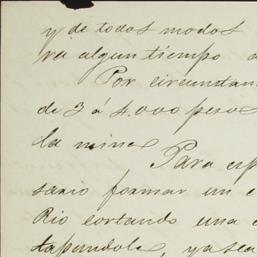 y de todos modos
ra algun tiempo
Por circunstan
de 3 á 4.000 pesos
la mina
Para esp
sario formar un
Rio cortando una
tapandola, ya sea